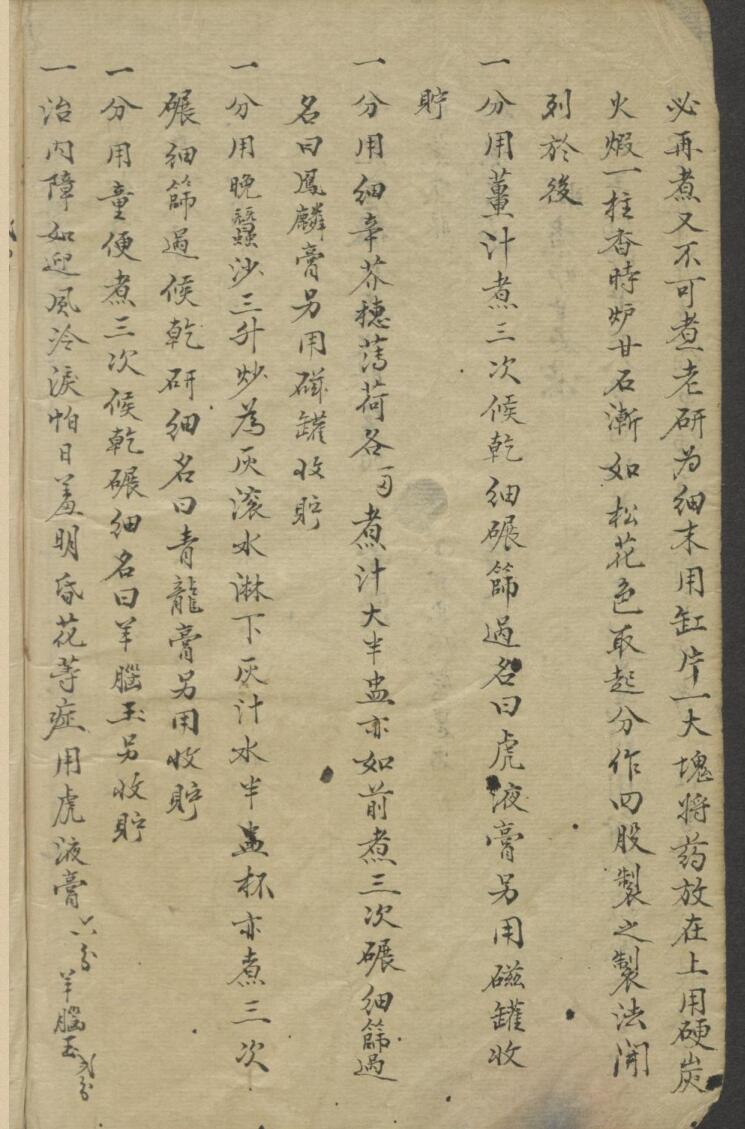 必再煮又不可煮老研为細末用缸片一大塊將药放在上用硬炭
火煆一柱香時炉甘石漸如松花色取起分作四股製之製法開
列於後
一分用薑汁煮三次候乾細碾篩過名曰虎液膏另用磁罐收
貯
一分用細辛芥穗薄荷各煮汁大半盅亦如前煮三次碾細篩過
名曰鳳麟膏另用磁罐收貯
一分用晚蠶沙三升炒為灰滚水淋下灰汁水半盅杯亦煮三次
碾細篩過候乾研細名曰青龍膏另用收貯
一分用童便煮三次候乾碾細名曰羊腦玉另收貯
一治内障如迎風冷淚怕日羞明昏花等症用虎液膏六分羊腦玉弍分